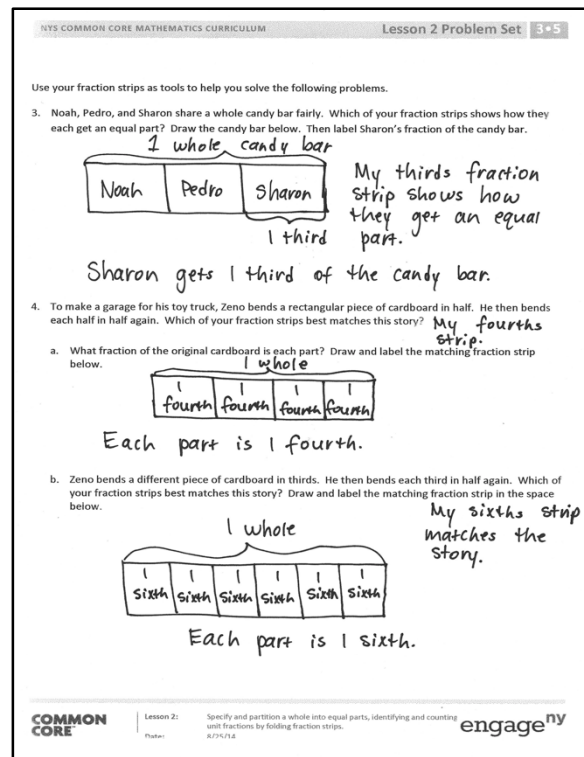 NYS COMMON CORE MATHEMATICS CURRICULUM
Lesson 2 Problem Set 3•5
Use your fraction strips as tools to help you solve the following problems.
3. Noah, Pedro, and Sharon share a whole candy bar fairly. Which of your fraction strips shows how they
each get an equal part? Draw the candy bar below. Then label Sharon's fraction of the candy bar.
1 whole candy bar
Noah Pedro Sharon
1 third
My thirds fraction
strip shows how
they get an equal
part.
Sharon gets 1 third of the candy bar.
4. To make a garage for his toy truck, Zeno bends a rectangular piece of cardboard in half. He then bends
each half in half again. Which of your fraction strips best matches this story? My fourths
strip.
a. What fraction of the original cardboard is each part? Draw and label the matching fraction strip
below.
1 whole
1 1 1 1
fourth fourth fourth fourth
Each part is 1 fourth.
b. Zeno bends a different piece of cardboard in thirds. He then bends each third in half again. Which of
your fraction strips best matches this story? Draw and label the matching fraction strip in the space
below.
My sixths strip
matches the
story.
1 whole
1 1 1 1 1 1
sixth sixth sixth sixth sixth sixth
Each part is 1 sixth.
COMMON
CORE
Lesson 2: Specify and partition a whole into equal parts, identifying and counting
unit fractions by folding fraction strips.
Date: 8/25/14
engage ny